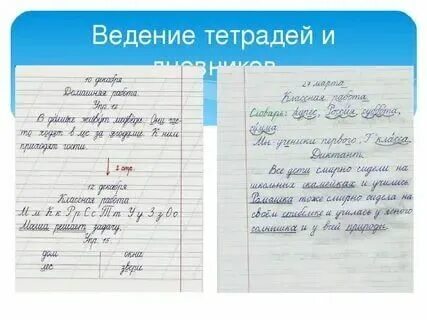 Ведение тетрадей и
дневников
10 декабря
Домашняя работа
Упр. 12
В домике живут медведи. Они час-
то ходят в лес за ягодами. К ним
приходят гости.
2 стр.
12 декабря
Классная работа
М м К к Р р С с Т т У у З з О о
Миша решает задачу.
Упр. 15
дом окна
лес звери
27 марта
Классная работа
Словарь: адрес, Россия, суббота,
Мы - ученики первого „Г" класса
Диктант
Все дети смирно сидели на
школьных скамейках и учились
Ромашка тоже смирно сидела на
своём стебельке и училась у ясного
солнышка и у всей природы.